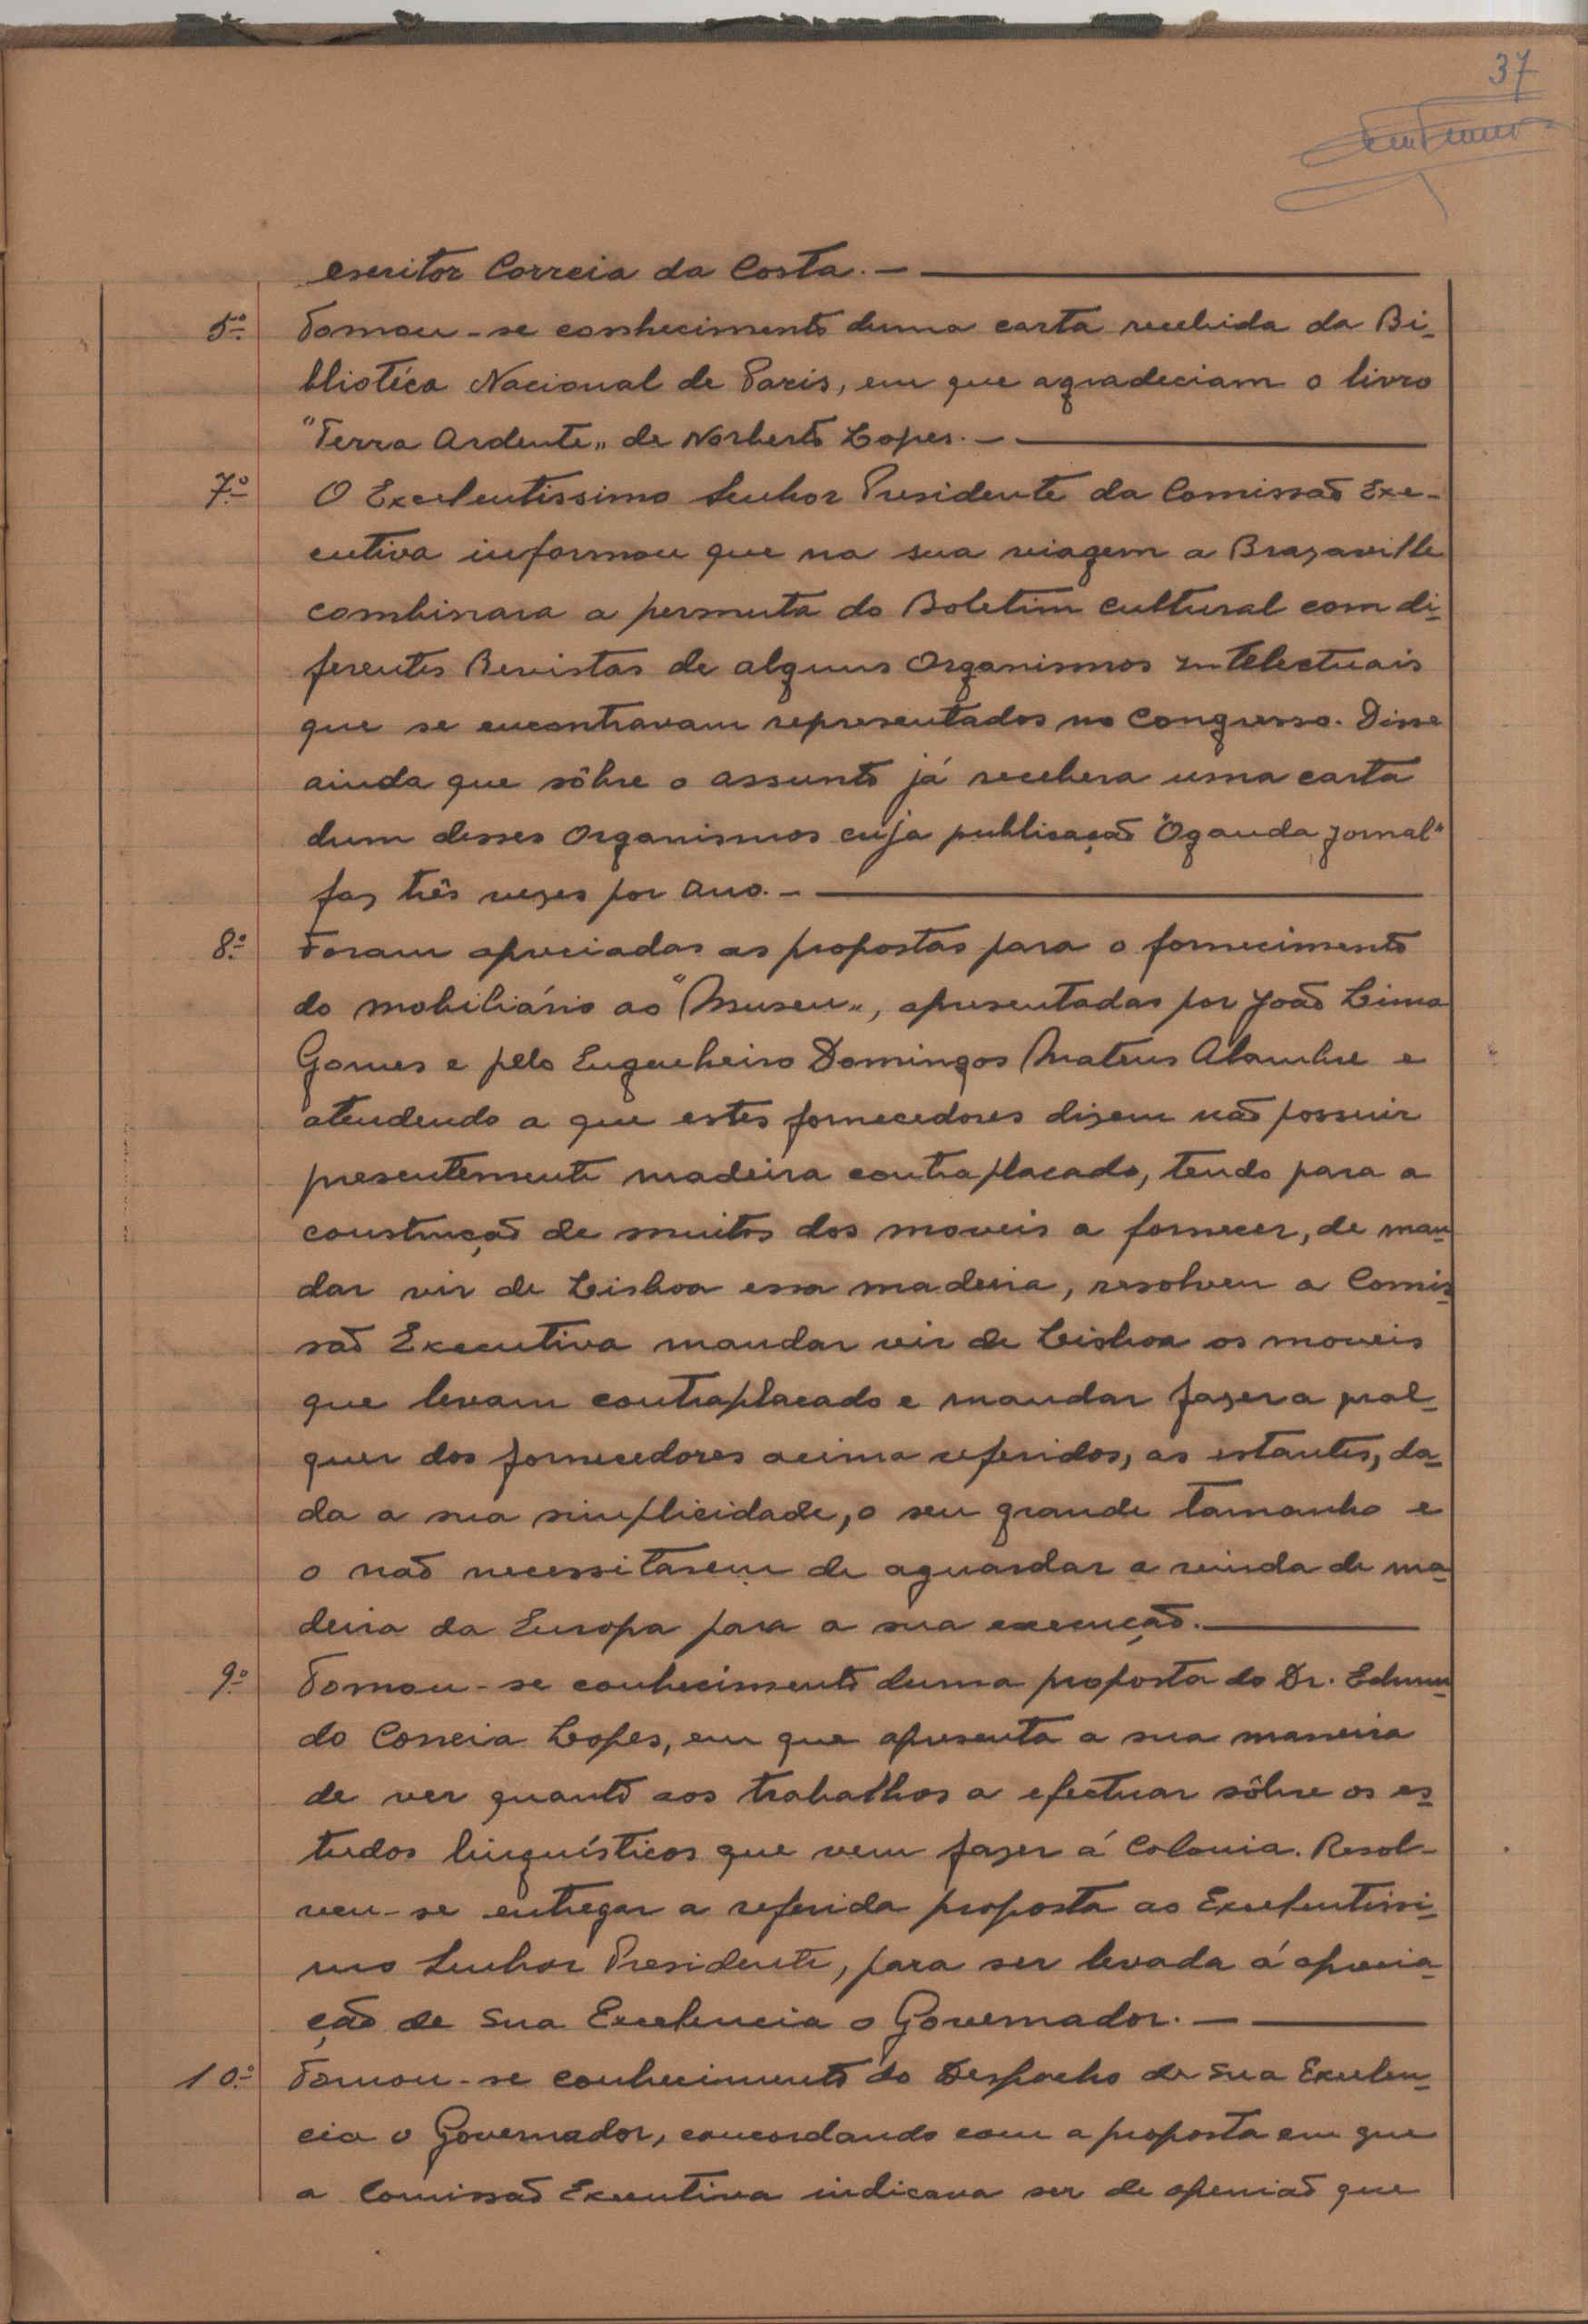 37
escritor Correia da Costa. —
5º Tomou-se conhecimento duma carta recebida da Bi-
bliotéca Nacional de Paris, em que agradeciam o livro
"Terra Ardente" de Norberto Lopes. —
7º O Excelentissimo Senhor Presidente da Comissão Exe-
cutiva informou que na sua viagem a Brazaville
combinara a permuta do Boletim cultural com di-
ferentes Revistas de alguns Organismos Intelectuais
que se encontravam representados no Congresso. Disse
ainda que sôbre o assunto já recebera uma carta
dum desses Organismos cuja publicação "Oganda Jornal"
faz três vezes por ano. —
8º Foram apreciadas as propostas para o fornecimento
do mobiliário ao "Museu", apresentadas por João Lima
Gomes e pelo Engenheiro Domingos Mateus Alambre e
atendendo a que estes fornecedores dizem não possuir
presentemente madeira contraplacado, tendo para a
construção de muitos dos moveis a fornecer, de man-
dar vir de Lisboa essa madeira, resolveu a Comis-
são Executiva mandar vir de Lisboa os moveis
que levam contraplacado e mandar fazer a qual-
quer dos fornecedores acima referidos, as estantes, da-
da a sua simplicidade, o seu grande tamanho e
o não necessitarem de aguardar a vinda de ma-
deira da Europa para a sua execução. —
9º Tomou-se conhecimento duma proposta do Dr. Edmun-
do Correia Lopes, em que apresenta a sua maneira
de ver quanto aos trabalhos a efectuar sôbre os es-
tudos linguísticos que vem fazer á Colonia. Resol-
veu-se entregar a referida proposta ao Excelentissi-
mo Senhor Presidente, para ser levada á aprecia-
ção de Sua Excelencia o Governador. —
10º Tomou-se conhecimento do Despacho de Sua Excelen-
cia o Governador, concordando com a proposta em que
a Comissão Executiva indicava ser de openião que